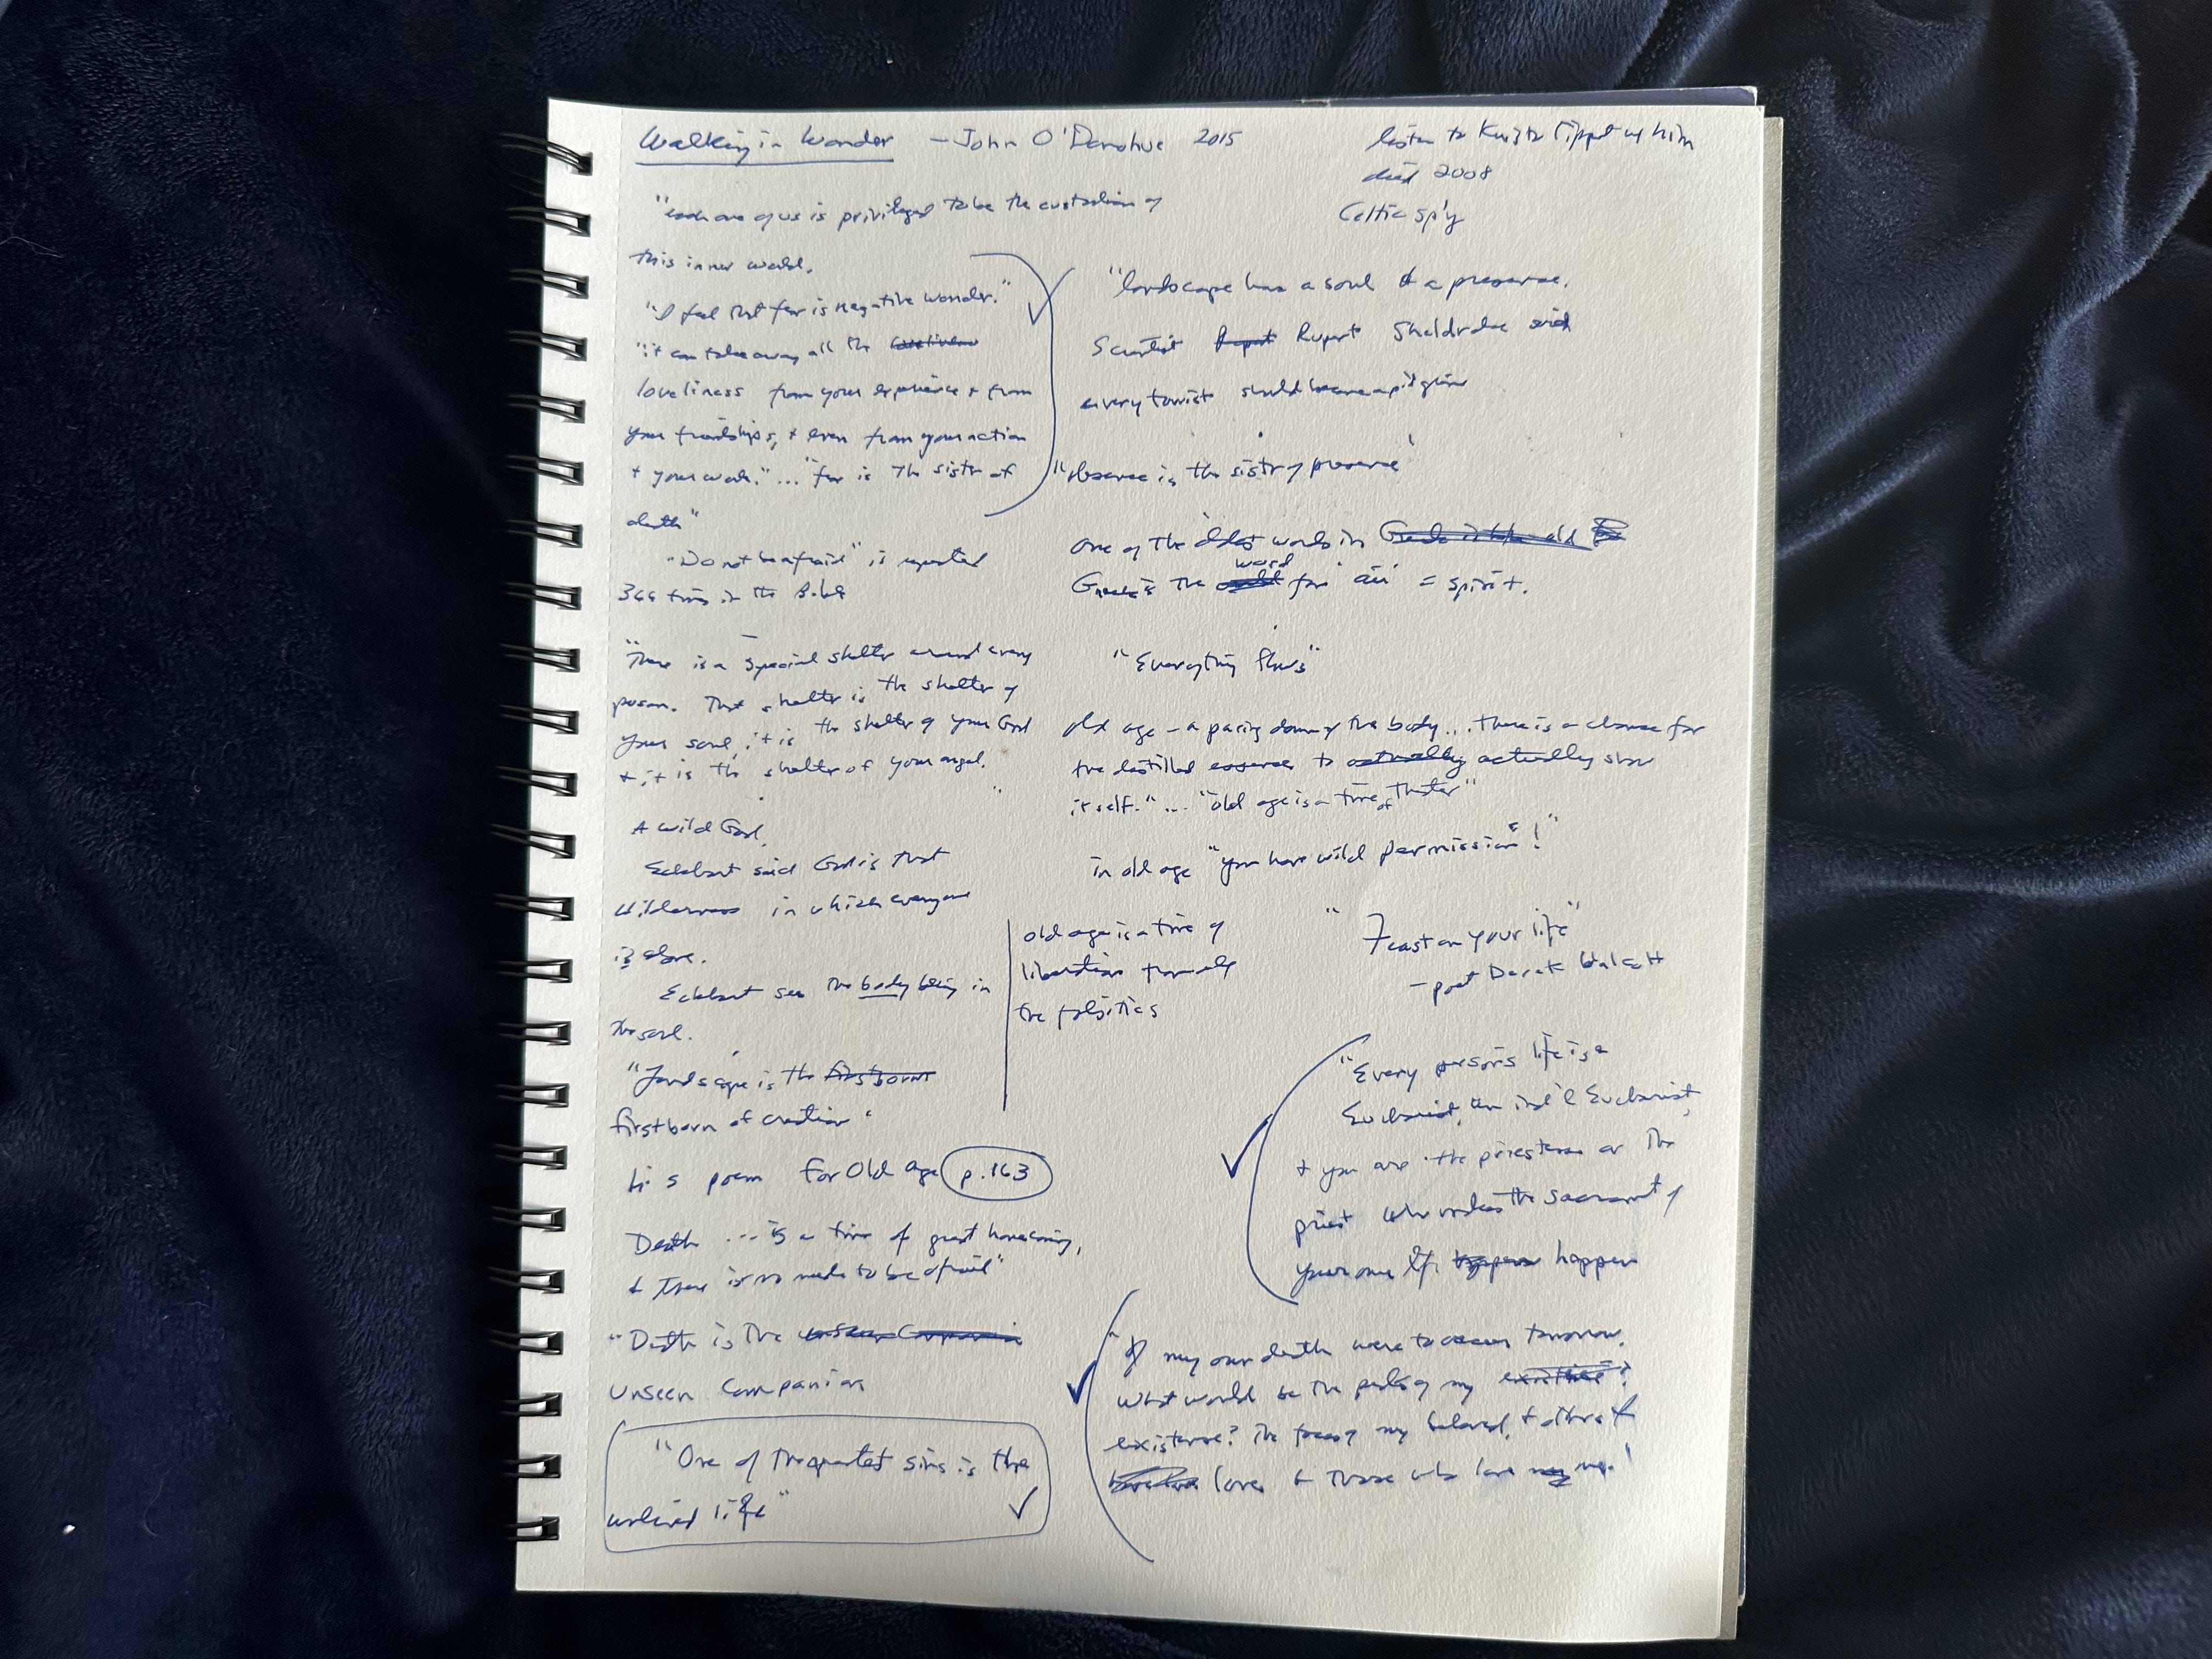 Walking in Wonder - John O'Donohue 2015
listen to Krista Tippet w/ him
died 2008
Celtic sp'y
"each one of us is privileged to be the custodian of
this inner world.
"I feel that fear is negative wonder."
"it can take away all the
loveliness from your experience + from
your friendships, + even from your action
+ your work." ... "fear is the sister of
death"
"Do not be afraid" is repeated
366 times in the Bible
"There is a special shelter around every
person. That shelter is the shelter of
your soul, it is the shelter of your God
+ it is the shelter of your angel."
A wild God.
Eckhart said God is that
wilderness in which everyone
is alone.
Eckhart sees the body being in
the soul.
"Landscape is the firstborn
firstborn of creation"
His poem for Old Age p. 163
Death ... is a time of great homecoming,
+ there is no need to be afraid"
"Death is the unseen Companion
unseen Companion
"One of the greatest sins is the
unlived life"
"landscape has a soul & a presence.
Scientist Rupert Sheldrake said
every tourist should become a pilgrim
"absence is the sister of presence"
one of the oldest words in
Greek is the word for 'air' = spirit.
"Everything flows"
old age - a paring down of the body... there is a chance for
the distilled essence to actually actually show
itself." ... "old age is a time of
in old age "you have wild permission"!"
old age is a time of
liberation from all
the falsities
"Feast on your life"
- poet Derek Walcott
"Every person's life is a
Eucharist, an ind'l Eucharist,
+ you are the priestess or the
priest who makes the sacrament of
your own life happen
"If my own death were to occur tomorrow,
what would be the peaks of my existence?
existence? The faces of my beloved, + others I
love & those who love me."